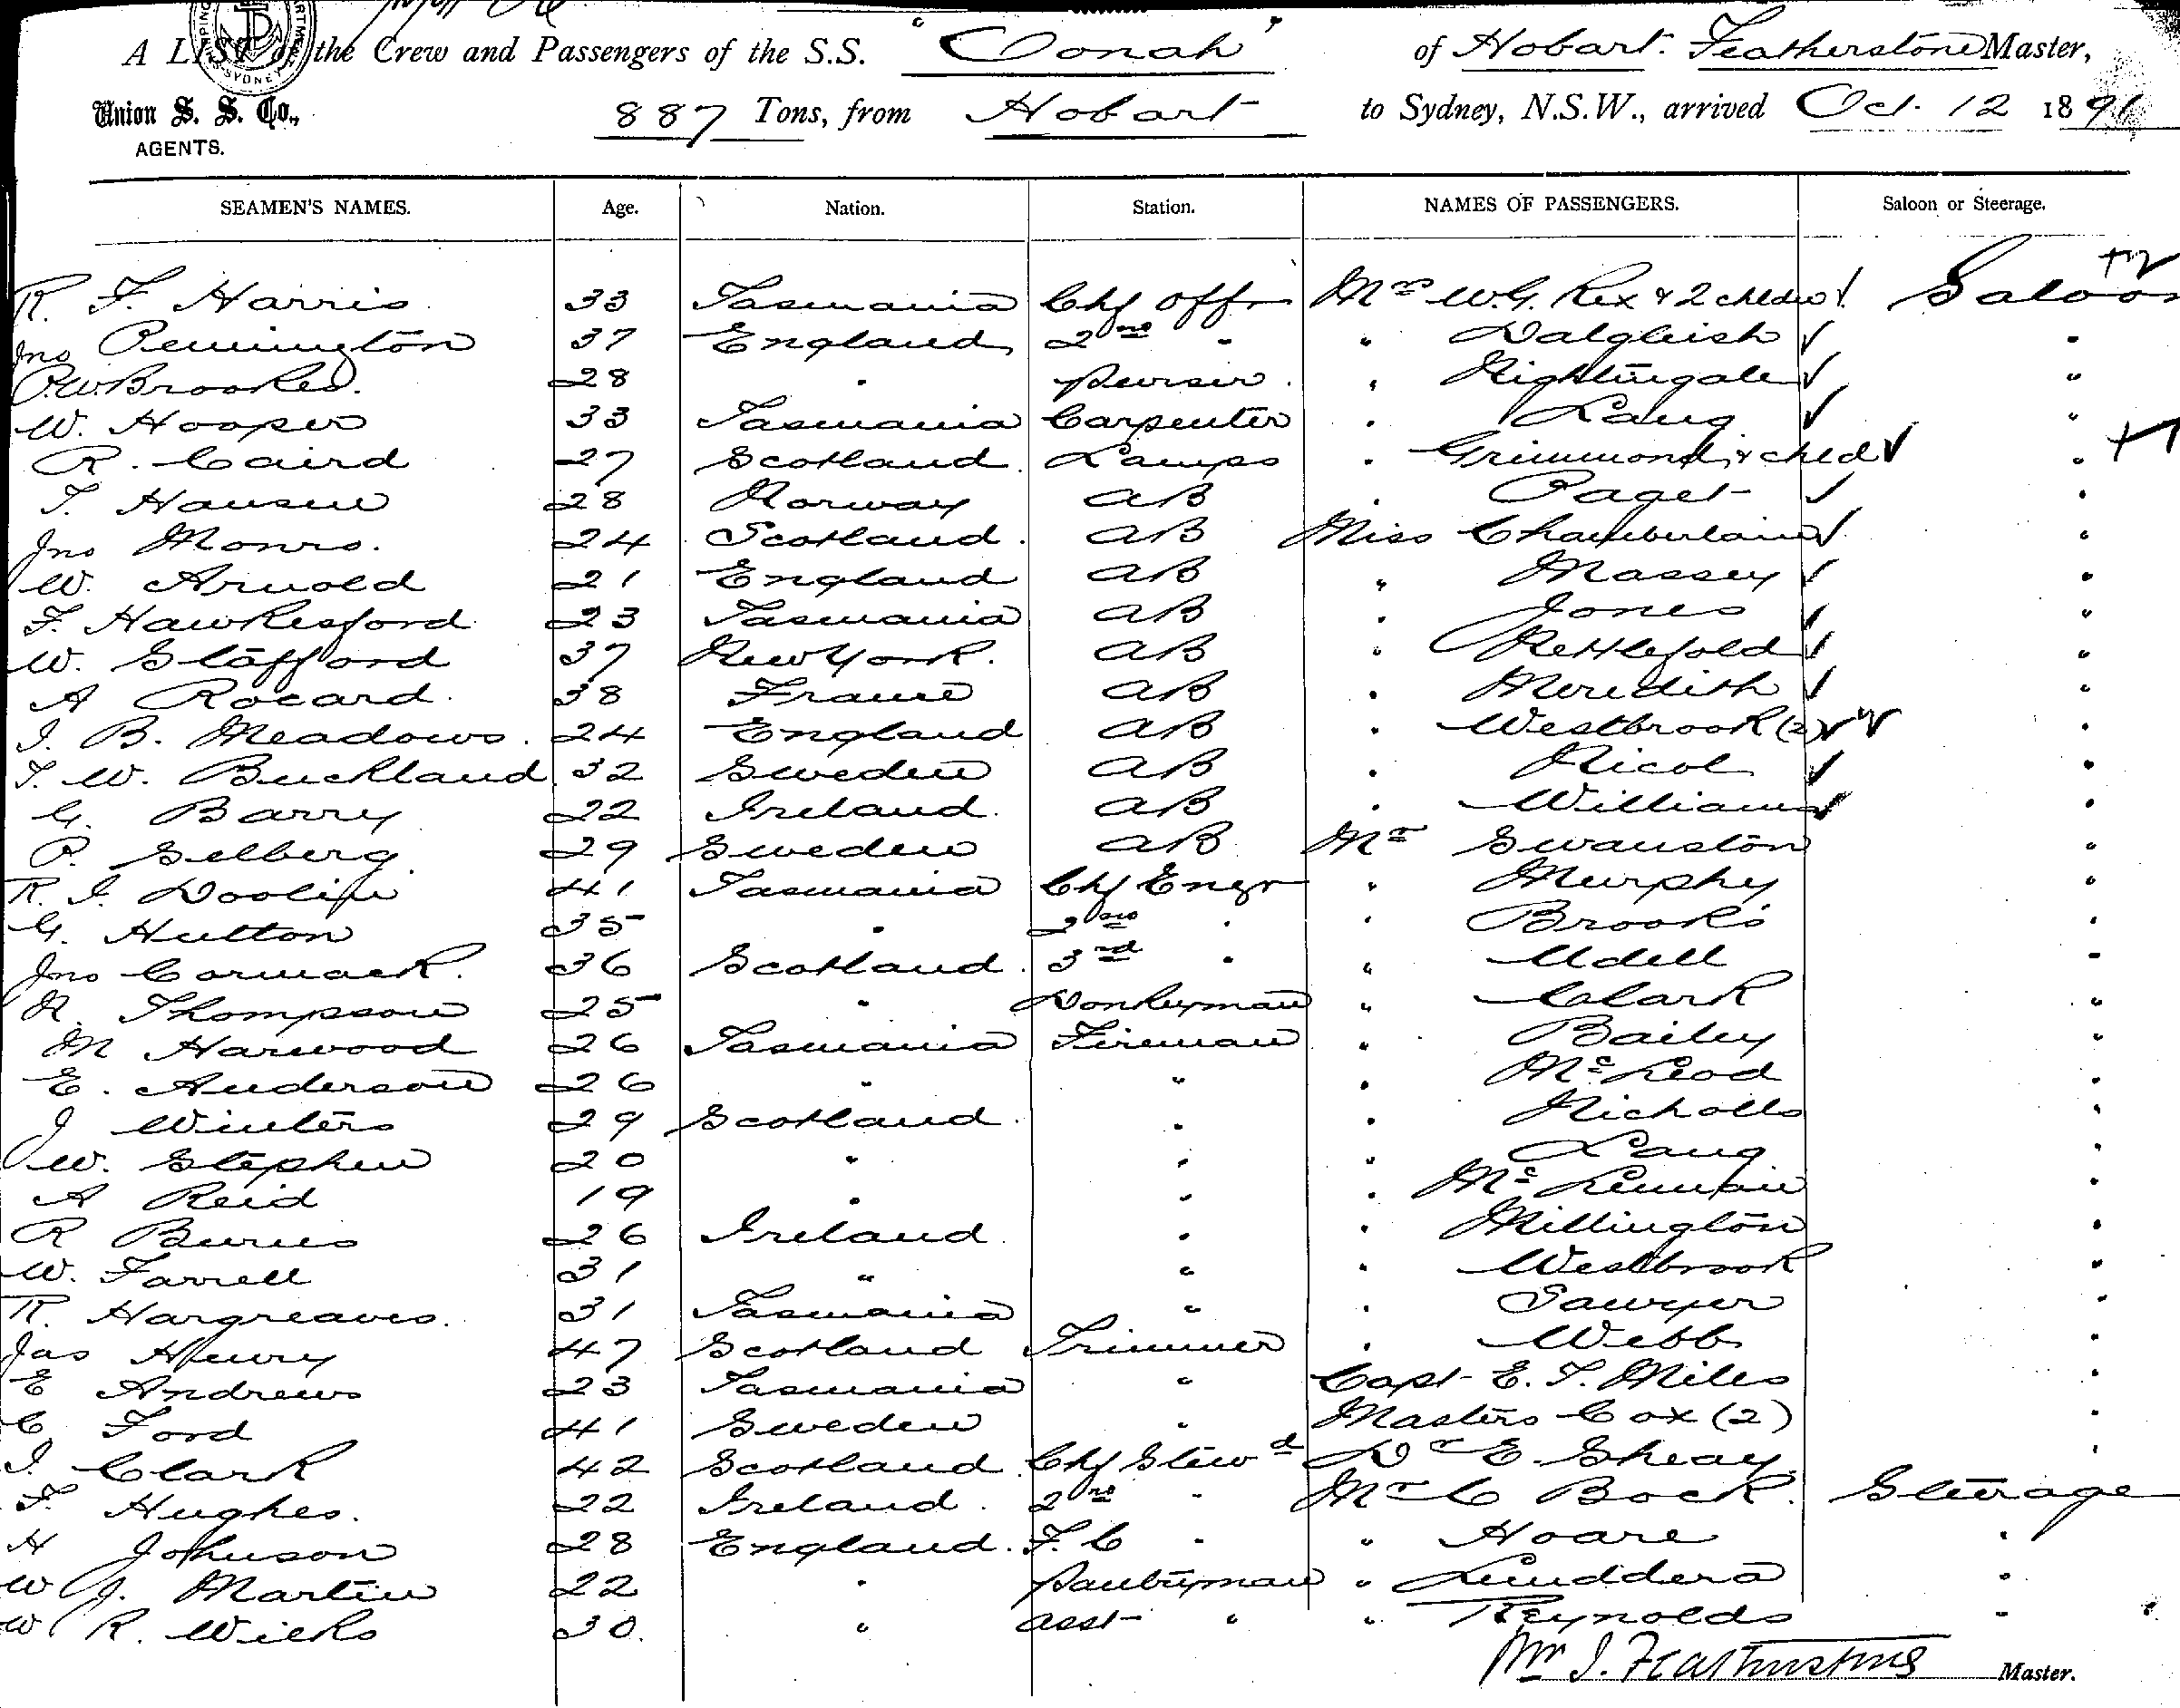 A LIST of the Crew and Passengers of the S.S. "Oonah" of Hobart. Featherstone Master,
Union S. S. Co., 887 Tons, from Hobart to Sydney, N.S.W., arrived Oct. 12 1891
AGENTS.
SEAMEN'S NAMES. Age. Nation. Station. NAMES OF PASSENGERS. Saloon or Steerage.
R. F. Harris 33 Tasmania Chf Offr Mrs W.G. Rex & 2 childn Saloon
Jno Pennington 37 England 2nd " " Dalgleish "
P.W. Brookes. 28 " purser " Nightingale "
W. Hooper 33 Tasmania Carpenter " Lang "
R. Caird 27 Scotland Lamps " Grimmond & chld "
T. Hansen 28 Norway AB " Paget "
Jno Monro. 24 Scotland. AB Miss Chamberlain "
W. Arnold 21 England AB " Massey "
F. Hawkesford 23 Tasmania AB " Jones "
W. Stafford 37 New York. AB " Nettlefold "
A Rocard. 38 France AB " Meredith "
J. B. Meadows. 24 England AB " Westbrook (2) "
T. W. Buckland 32 Sweden AB " Nicol "
G. Barry 22 Ireland. AB " Williams "
P. Selberg. 29 Sweden AB Mr Swanston "
R. J. Doolin 41 Tasmania Chf Engr " Murphy "
G. Hutton 35 " 2nd " " Brooks "
Jno Cormack. 36 Scotland. 3rd " " Udell "
Thompson 25 " Donkeyman " Clark "
M Harwood 26 Tasmania Fireman " Bailey "
E. Anderson 26 " " " McLeod "
J Winters 29 Scotland. " " Nicholls "
W. Stephen 20 " " " Lang "
A Reid 19 " " " "
R Burns 26 Ireland. " " Millington "
W. Farrell 31 " " " Westbrook "
R. Hargreaves. 31 Tasmania " " Sawyer "
Jas Henry 47 Scotland Trimmer " Webb "
E Andrews 23 Tasmania " Capt E. T. Miles "
C Ford 41 Sweden " Masters Cox (2) "
J. Clark 42 Scotland Chf Stewd Dr E. Sheay "
F. Hughes. 22 Ireland. 2nd " Mr C Bock. Steerage
H Johnson 28 England. F.C " " Hoare "
W J. Martin 22 " pantryman " "
W R. Wicks 30. " asst " " Reynolds "
Wm J. Featherstone Master.